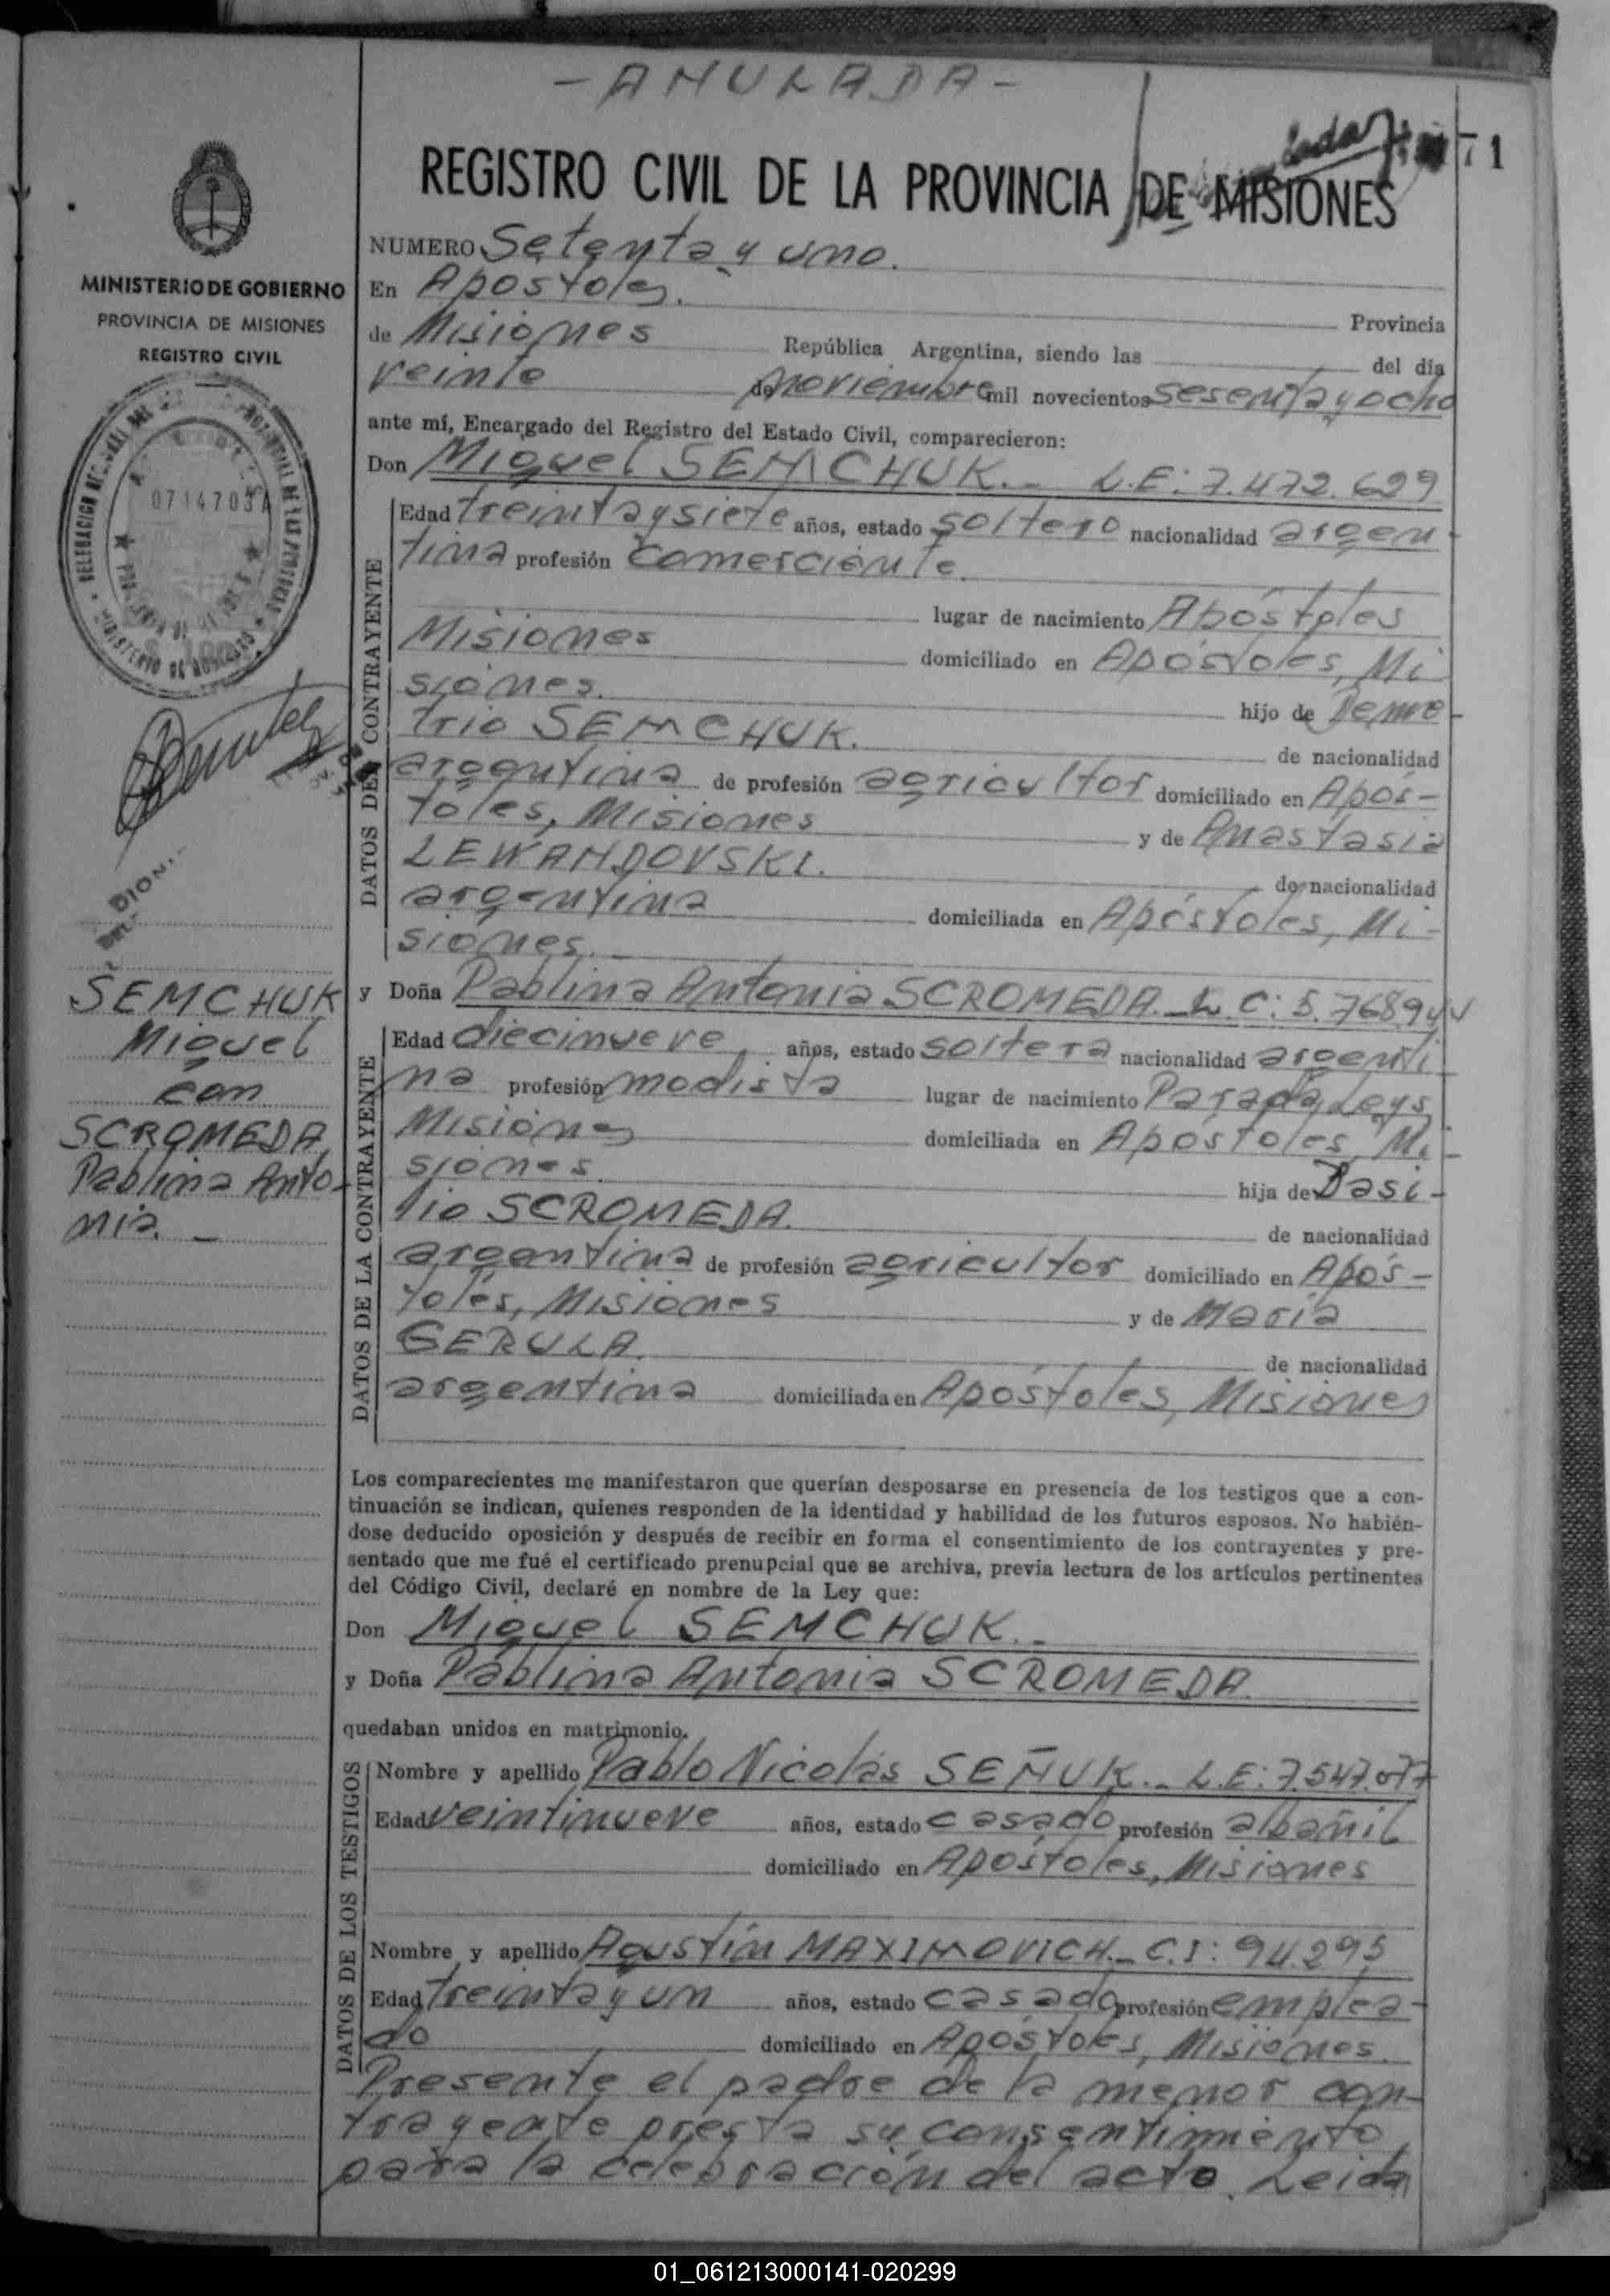 - ANULADA -
71
REGISTRO CIVIL DE LA PROVINCIA DE MISIONES
MINISTERIO DE GOBIERNO
PROVINCIA DE MISIONES
REGISTRO CIVIL
0714703A
NUMERO Setenta y uno.
En Apostoles. Provincia
de Misiones República Argentina, siendo las del día
veinte de noviembre mil novecientos sesenta y ocho
ante mí, Encargado del Registro del Estado Civil, comparecieron:
Don Miguel SEMCHUK.- L.E: 7.472.629
DATOS DEL CONTRAYENTE
Edad treinta y siete años, estado soltero nacionalidad argen-
tina profesión comerciante.
lugar de nacimiento Apóstoles
Misiones domiciliado en Apóstoles, Mi
siones. hijo de Deme-
trio SEMCHUK. de nacionalidad
argentina de profesión agricultor domiciliado en Após-
toles, Misiones y de Anastasia
LEWANDOVSKI. de nacionalidad
argentina domiciliada en Apóstoles, Mi-
siones.
SEMCHUK
Miguel
con
SCROMEDA,
Pablina Anto-
nia. -
y Doña Pablina Antonia SCROMEDA.- L.C: 5.768.944
DATOS DE LA CONTRAYENTE
Edad diecinueve años, estado soltera nacionalidad argenti-
na profesión modista lugar de nacimiento Parada Leys
Misiones domiciliada en Apóstoles, Mi-
siones. hija de Basi-
lio SCROMEDA. de nacionalidad
argentina de profesión agricultor domiciliado en Após-
toles, Misiones y de María
GERULA. de nacionalidad
argentina domiciliada en Apóstoles, Misiones
Los comparecientes me manifestaron que querían desposarse en presencia de los testigos que a con-
tinuación se indican, quienes responden de la identidad y habilidad de los futuros esposos. No habién-
dose deducido oposición y después de recibir en forma el consentimiento de los contrayentes y pre-
sentado que me fué el certificado prenupcial que se archiva, previa lectura de los artículos pertinentes
del Código Civil, declaré en nombre de la Ley que:
Don Miguel SEMCHUK.-
y Doña Pablina Antonia SCROMEDA.
quedaban unidos en matrimonio.
DATOS DE LOS TESTIGOS
Nombre y apellido Pablo Nicolás SEÑUK.- L.E: 7.547.077
Edad veintinueve años, estado casado profesión albañil
domiciliado en Apóstoles, Misiones
Nombre y apellido Agustín MAXIMOVICH.- C.I: 94.295
Edad treinta y un años, estado casado profesión emplea-
do domiciliado en Apóstoles, Misiones.
Presente el padre de la menor con-
trayente presta su consentimiento
para la celebración del acto. Leida
01_061213000141-020299